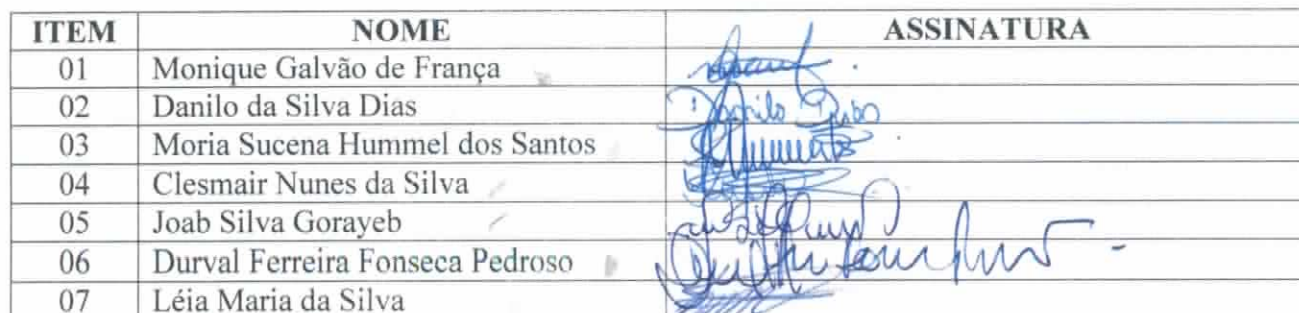 ITEM NOME ASSINATURA
01 Monique Galvão de França
02 Danilo da Silva Dias Danilo Dias
03 Moria Sucena Hummel dos Santos
04 Clesmair Nunes da Silva
05 Joab Silva Gorayeb
06 Durval Ferreira Fonseca Pedroso
07 Léia Maria da Silva